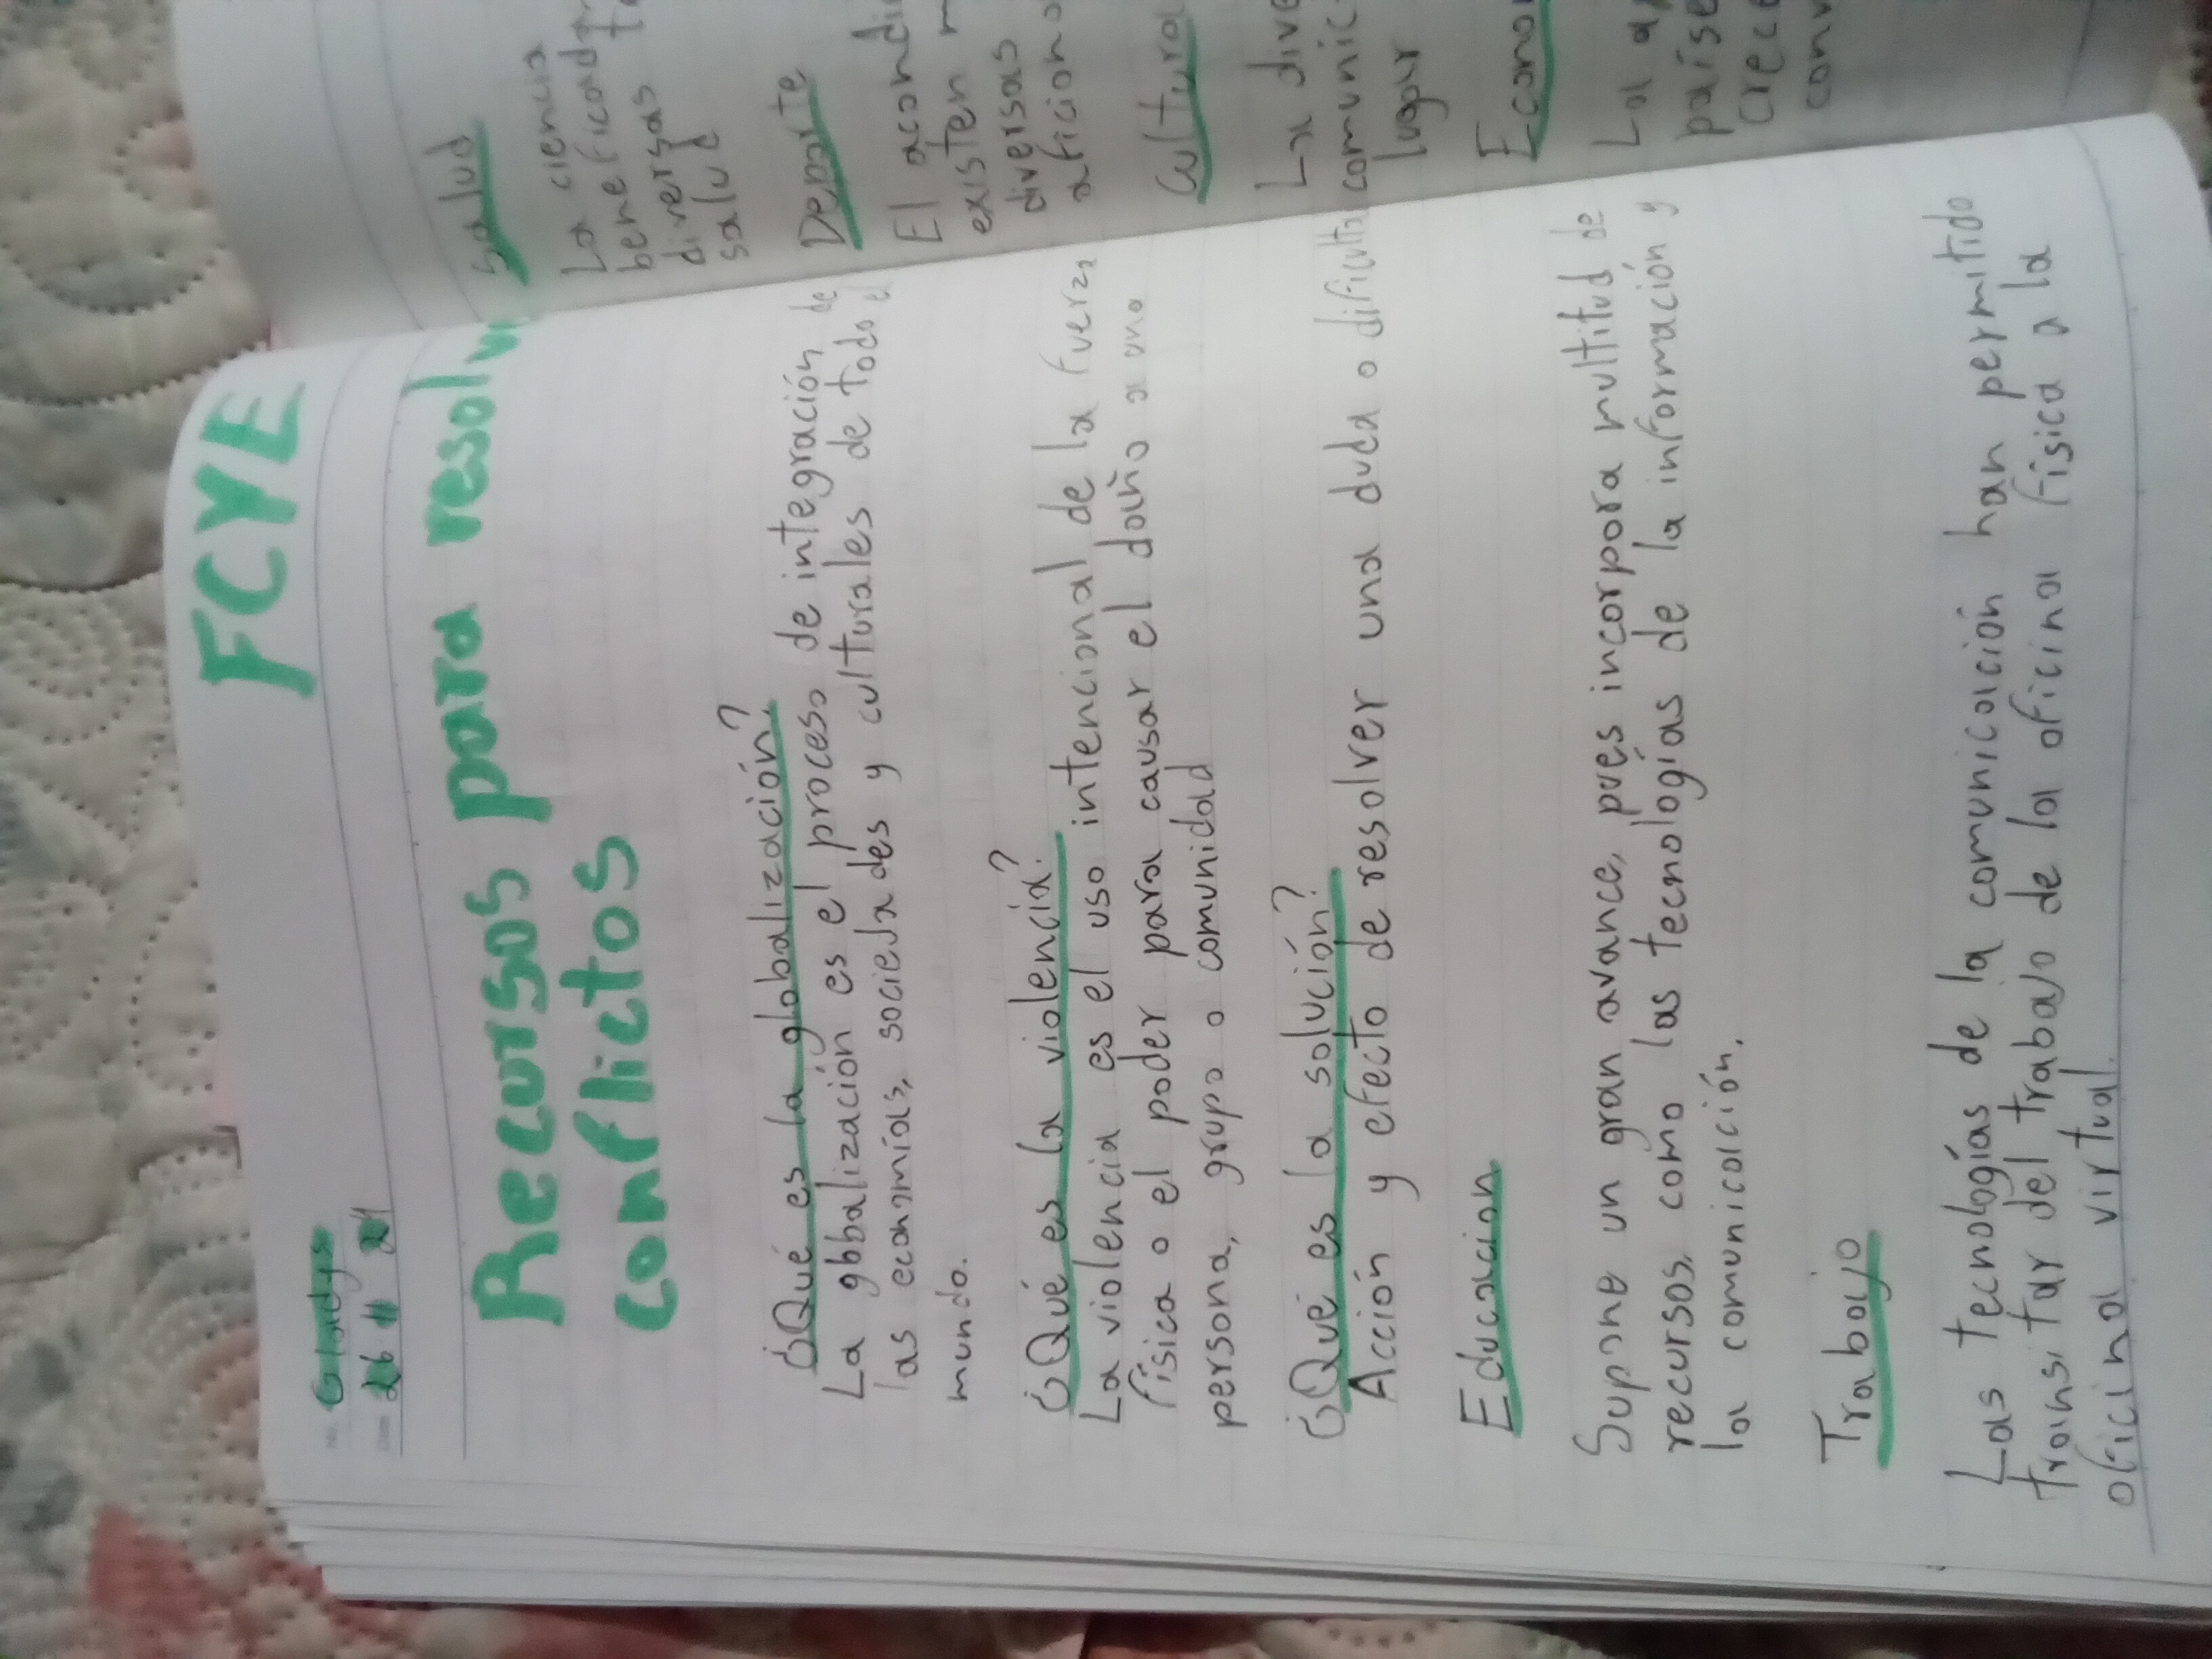 FCYE
Gladys
26 11 21
Recursos para resolv
conflictos
¿Qué es la globalización?
La globalización es el proceso de integración de
las economías, sociedades y culturales de todo el
mundo.
¿Qué es la violencia?
La violencia es el uso intencional de la fuerza
física o el poder para causar el daño a una
persona, grupo o comunidad
¿Qué es la solución?
Acción y efecto de resolver una duda o dificulta
Educacion
Supone un gran avance, pues incorpora multitud de
recursos, como las tecnologías de la información y
la comunicación.
Trabajo
Las tecnologías de la comunicación han permitido
transitar del trabajo de la oficina física a la
oficina virtual.
Salud
La ciencia
beneficiad
diversas
salud
Deporte
El acondi
existen
diversas
aficiona
Cultura
La dive
comunic
lugar
Econo
La a
paíse
crec